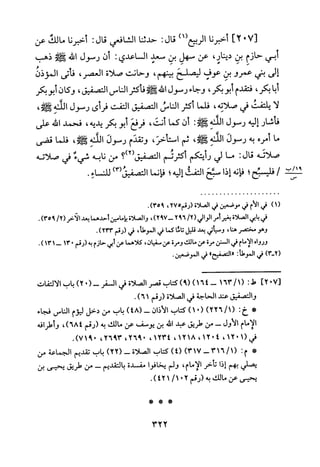 [٢٠٧] أخبرنا الربيع(١) قال: حدثنا الشافعي قال: أخبرنا مالك عن
أبي حازم بنِ دينارٍ، عن سهلِ بنِ سعدٍ الساعدي: أن رسول الله ﷺ ذهب
إلى بني عمرو بنِ عوفٍ ليصلحَ بينهم، وحانت صلاة العصر، فأتى المؤذنُ
أبا بكر، فتقدم أبو بكر، وجاء رسول الله ﷺ فأكثر الناس التصفيق، وكان أبو بكر
لا يلتفتُ في صلاتِهِ، فلما أكثر الناسُ التصفيق التفت فرأى رسول الله ﷺ،
فأشار إليه رسول الله ﷺ: أن كما أنتَ، فرفعَ أبو بكر يديه، فحمد الله على
ما أمره به رسولُ الله ﷺ، ثم استأخرَ، وتقدّم رسول الله ﷺ، فلما قضى
صلاتَه قال: ما لي رأيتكم أكثرتُم التصفيق(٢)؟ من نابه شيءٌ في صلاته
١٩/ب / فليسبح؛ فإنه إذا سبحَ التفتُ إليه؛ فإنما التصفيقُ(٣) للنساء.
(١) في الأم في موضعين في الصلاة (رقم ٢٧٠، ٣٥٩).
في بابي الصلاة بغير أمر الوالي (٢/ ٢٩٦ – ٢٩٧)، والصلاة بإمامين أحدهما بعد الآخر (٢/ ٣٥٩).
وهو مختصر هنا، وسيأتي بعد قليل تامًّا كما في الموطأ، في (رقم ٢٣٣).
ورواه الإمام في السنن مرة عن مالك ومرة عن سفيان، كلاهما عن أبي حازم به (رقم ١٣٠ – ١٣١).
(٢-٣) في الموطأ: «التصفيح» في الموضعين.
[٢٠٧] ط: (١/ ١٦٣ – ١٦٤) (٩) كتاب قصر الصلاة في السفر – (٢٠) باب الالتفات
والتصفيق عند الحاجة في الصلاة (رقم ٦١).
* خ: (١/ ٢٢٦) (١٠) كتاب الأذان – (٤٨) باب من دخل ليؤم الناس فجاء
الإمام الأول – من طريق عبد الله بن يوسف عن مالك به (رقم ٦٨٤)، وأطرافه
في (١٢٠١، ١٢٠٤، ١٢١٨، ١٢٣٤، ٢٦٩٠، ٢٦٩٣، ٧١٩٠).
* م: (١/ ٣١٦ – ٣١٧) (٤) كتاب الصلاة – (٢٢) باب تقديم الجماعة من
يصلي بهم إذا تأخر الإمام، ولم يخافوا مفسدة بالتقديم – من طريق يحيى بن
يحيى عن مالك به (رقم ١٠٢/ ٤٢١).
* * *
٣٢٢